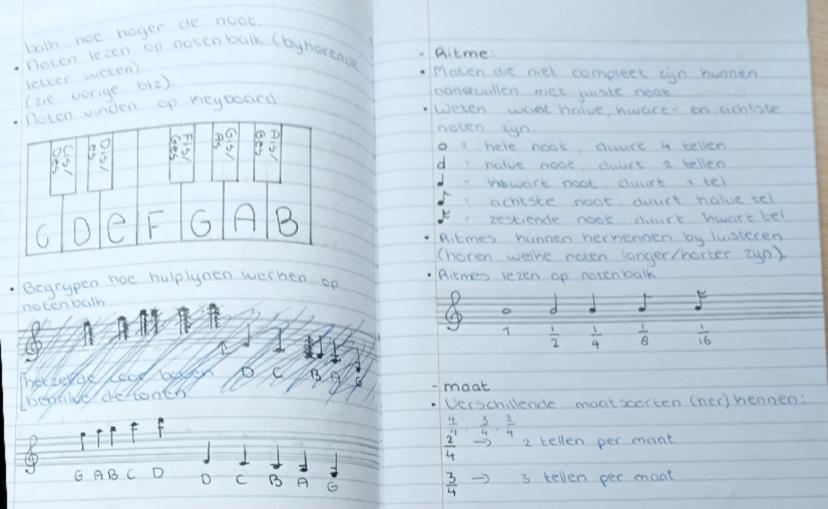 balk. hoe hoger de noot.
• Noten lezen op notenbalk (byhorende
letter weten)
(zie vorige blz).
• Noten vinden op keyboard
Cis/ Des Dis/ es Fis/ Ges Gis/ As Ais/ Bes
C D e F G A B
• Begrypen hoe hulplynen werken op
notenbalk
D C B A G
[hetzelfde voor boven
G A B C D D C B A G
- Ritme:
• Maten die niet compleet zijn kunnen
aanvullen met juiste noot
• Weten wat halve, kwart- en achtste
noten zyn.
= hele noot, duurt 4 tellen
= halve noot, duurt 2 tellen
= kwart noot, duurt 1 tel
= achtste noot, duurt halve tel
= zestiende noot, duurt kwart tel
• Ritmes kunnen herkennen by luisteren
(horen welke noten langer/korter zyn)
• Ritmes lezen op notenbalk
1 1/2 1/4 1/8 1/16
- maat
• Verschillende maatsoorten (her)kennen:
4/4, 3/4, 2/4
2/4 → 2 tellen per maat
3/4 → 3 tellen per maat